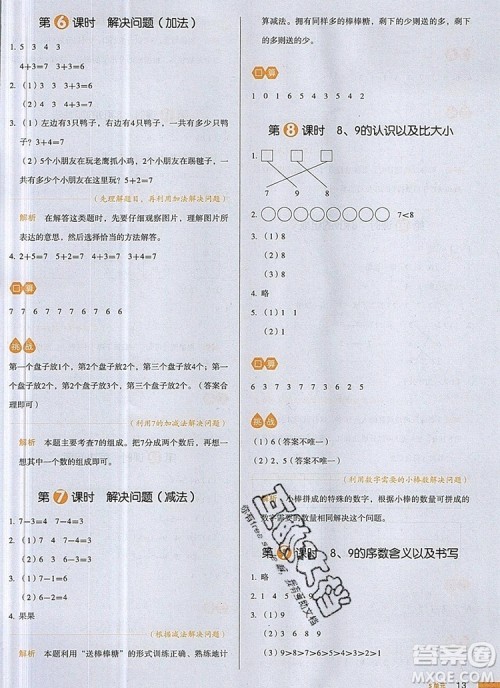 第6课时 解决问题（加法）
1. 3 4 7 4 3 7
4+3=7 3+4=7
2. （1）3 4 3+4=7
（2）5 2 5+2=7
3. （1）左边有3只鸭子，右边有4只鸭子，一共有多少只鸭子？
（2）5个小朋友在玩老鹰抓小鸡，2个小朋友在踢毽子，一共有多少个小朋友在这里玩？
（先理解题目，再利用加法解决问题）
解析 在解答这类题时，先要仔细观察图片，理解图片所表达的意思，然后用加法的方法解答。
4. 2+5=7 1+6=7 3+4=7
口算
7 7 7 7 7 7 7 7
挑战
第一个盘子放1个，第2个盘子放2个，第三个盘子放4个；第一个盘子放2个，第2个盘子放3个，第三个盘子放2个。（答案合理即可）
（利用7的加减法解决问题）
解析 本题主要考查7的组成。把7分成两个数，再把其中一个数分成两个数的组成即可。
第7课时 解决问题（减法）
1. 7-3=4 7-4=3
2. （1）3 7-3=4
（2）2 7-2=5
3. （1）7-1=6
（2）7-4=3
4. 果果
（根据减法解决问题）
解析 本题利用“送棒棒糖”的形式训练正确、熟练地计
算减法。拥有同样多的棒棒糖，剩下的少则送的多，剩下的多则送的少。
口算
1 0 1 6 5 4 3 5 4 2
第8课时 8、9的认识以及比大小
1. 7 9 8
2. 7<8
3. （1）8
（2）9
（3）8
4. 略
5. （1）7
（2）8
口算
6 3 7 3 7 7 3 6 7 1
挑战
（1）6（答案不唯一）
（2）8（答案不唯一）
（利用数字需要的小棒数解决问题）
解析 小棒拼成的特殊的数字，根据小棒的数量可以拼成不同的数字，然后根据数字需要的数量解决这个问题。
课时 8、9的序数含义以及书写
1. 略
2. （1）8 9
（2）7 8
（3）9>8>7>6>5>4>3>2>1
13